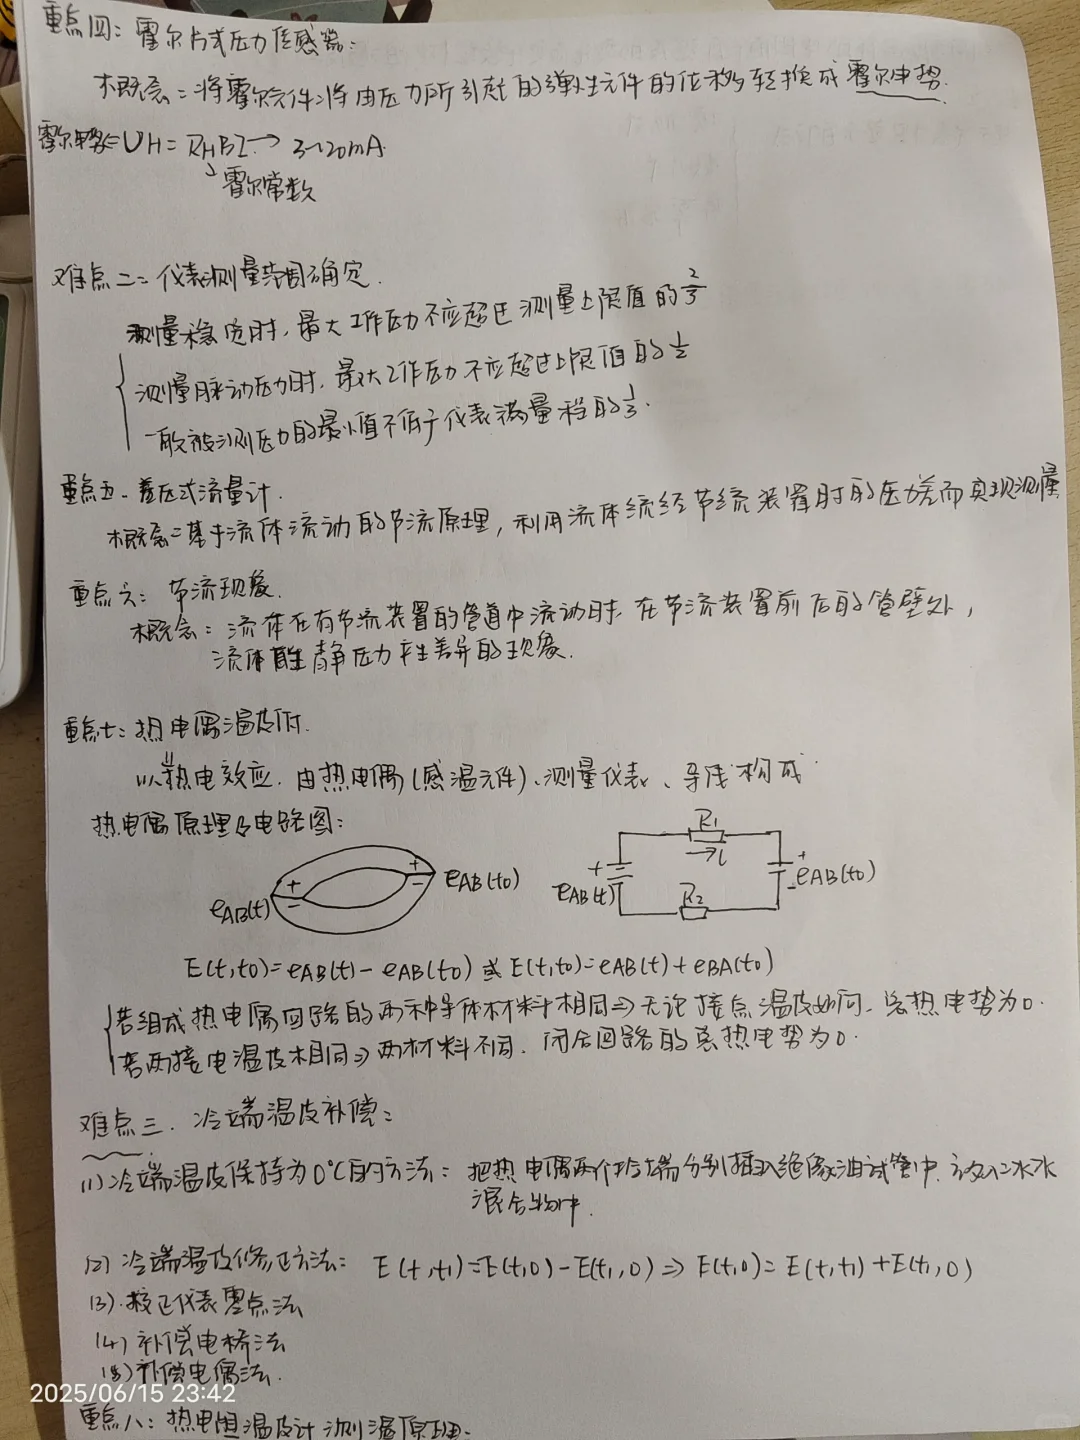 重点四：霍尔片式压力传感器：
概念：将霍尔元件将由压力所引起的弹性元件的位移转换成霍尔电势.
霍尔电势=UH=RHBI→3~20mA.
↘霍尔常数
难点二：仪表测量范围确定.
测量稳定时，最大工作压力不应超过测量上限值的2/3
测量脉动压力时，最大工作压力不应超过上限值的1/2
一般被测压力的最小值不低于仪表满量程的1/3.
重点五.差压式流量计.
概念：基于流体流动的节流原理，利用流体流经节流装置时的压力差而实现测量
重点六：节流现象.
概念：流体在有节流装置的管道中流动时.在节流装置前后的管壁处，
流体静压力产生差异的现象.
重点七：热电偶温度计.
以热电效应.由热电偶(感温元件)、测量仪表、导线构成.
热电偶原理及电路图：
R1
+ + →i +
− eAB(t0) + eAB(t0)
eAB(t) − eAB(t) R2 −
E(t,t0)=eAB(t)−eAB(t0)或E(t,t0)=eAB(t)+eBA(t0)
若组成热电偶回路的两种导体材料相同⇒无论接点温度如何.总热电势为0.
若两接电温度相同⇒两材料不同.闭合回路的总热电势为0.
难点三.冷端温度补偿：
(1)冷端温度保持为0℃的方法：把热电偶两个冷端分别插入绝缘油试管中.放入冰水
混合物中.
(2)冷端温度修正方法：E(t,t1)=E(t,0)−E(t1,0)⇒E(t,0)=E(t,t1)+E(t1,0)
(3).校正仪表零点法
(4)补偿电桥法
(5)补偿电偶法.
2025/06/15 23:42
重点八：热电阻温度计测温原理.